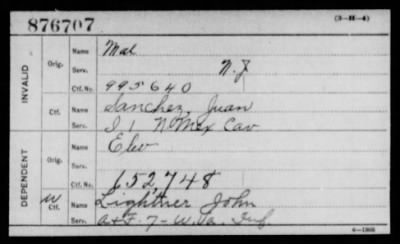 876707 (3-H-4)
INVALID
Orig.
Name Mal
Serv. N.J
Ctf. No. 995640
Ctf.
Name Sanchez, Juan
Serv. I 1 N Mex Cav
DEPENDENT
Orig.
Name Elev
Serv.
Ctf. No. 652748
W
Ctf.
Name Lightner John
Serv. A+F. 7-W.Va. Inf.
6-1308